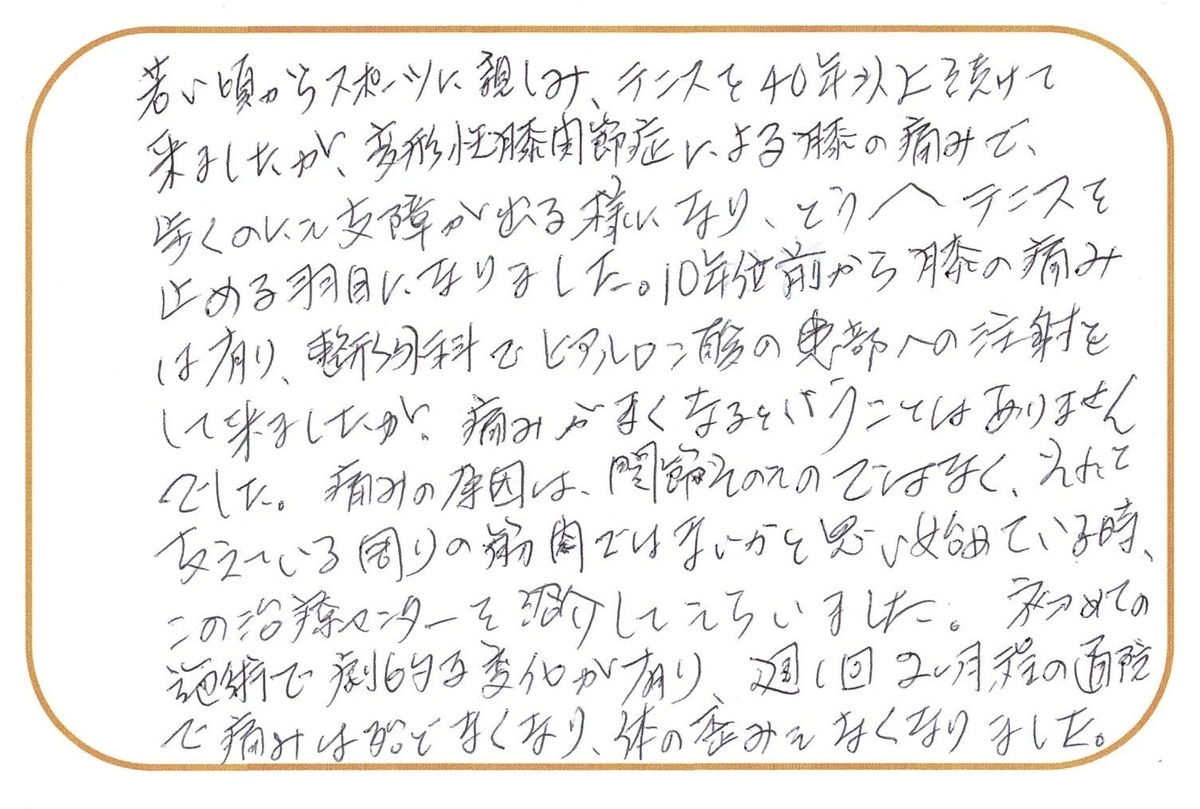 若い頃からスポーツに親しみ、テニスを40年以上続けて
来ましたが、変形性膝関節症による膝の痛みで、
歩くのにも支障が出る様になり、とうへテニスを
止める羽目になりました。10年位前から膝の痛み
は有り、整形外科でヒアルロン酸の患部への注射を
して来ましたが、痛みがなくなるということはありません
でした。痛みの原因は、関節そのものではなく、それを
支えている周りの筋肉ではないかと思い始めている時、
この治療センターを紹介してもらいました。初めての
施術で劇的な変化が有り、週1回2ヶ月程の通院
で痛みは殆どなくなり、体の歪みもなくなりました。